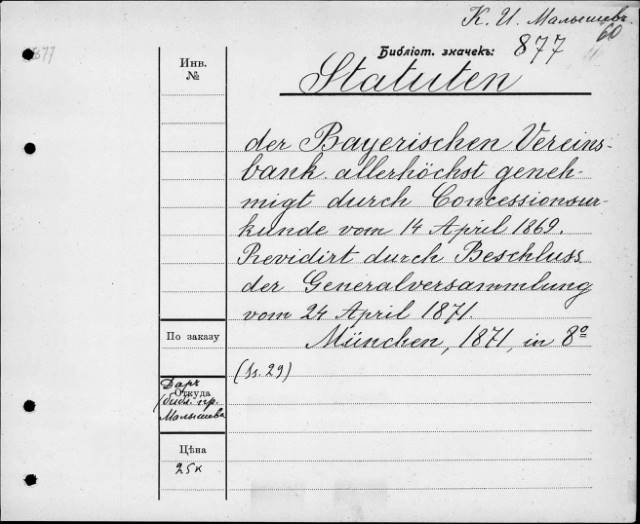 К. И. Малышевъ.
60
877
Библіот. значекъ: 877
Инв.
№
Statuten
der Bayerischen Vereins-
bank allerhöchst geneh-
migt durch Concessionsur-
kunde vom 14 April 1869.
Revidirt durch Beschluss
der Generalversammlung
vom 24 April 1871.
München, 1871, in 8º
(ss. 29)
По заказу
Откуда
Даръ
(библ. пр.
Малышева
Цѣна
25 к